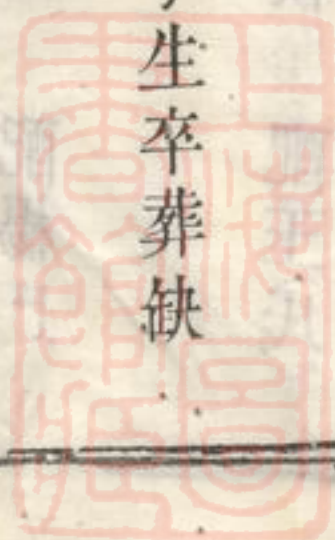 生卒葬缺
上海圖書館藏